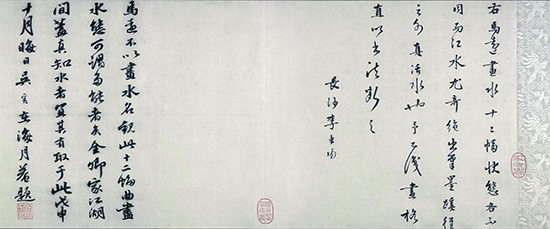 右馬遠畫水十二幅狀態各不
同而江水尤奇絕出筆墨蹊徑
之外真活水也予不識畫格
直以書法斷之
長沙李東陽
馬遠不以畫水名觀此十二幅曲盡
水態可謂多能者矣金卿家江湖
間蓋真知水者宜其有取于此戊申
十月晦日吳寬在海月菴題